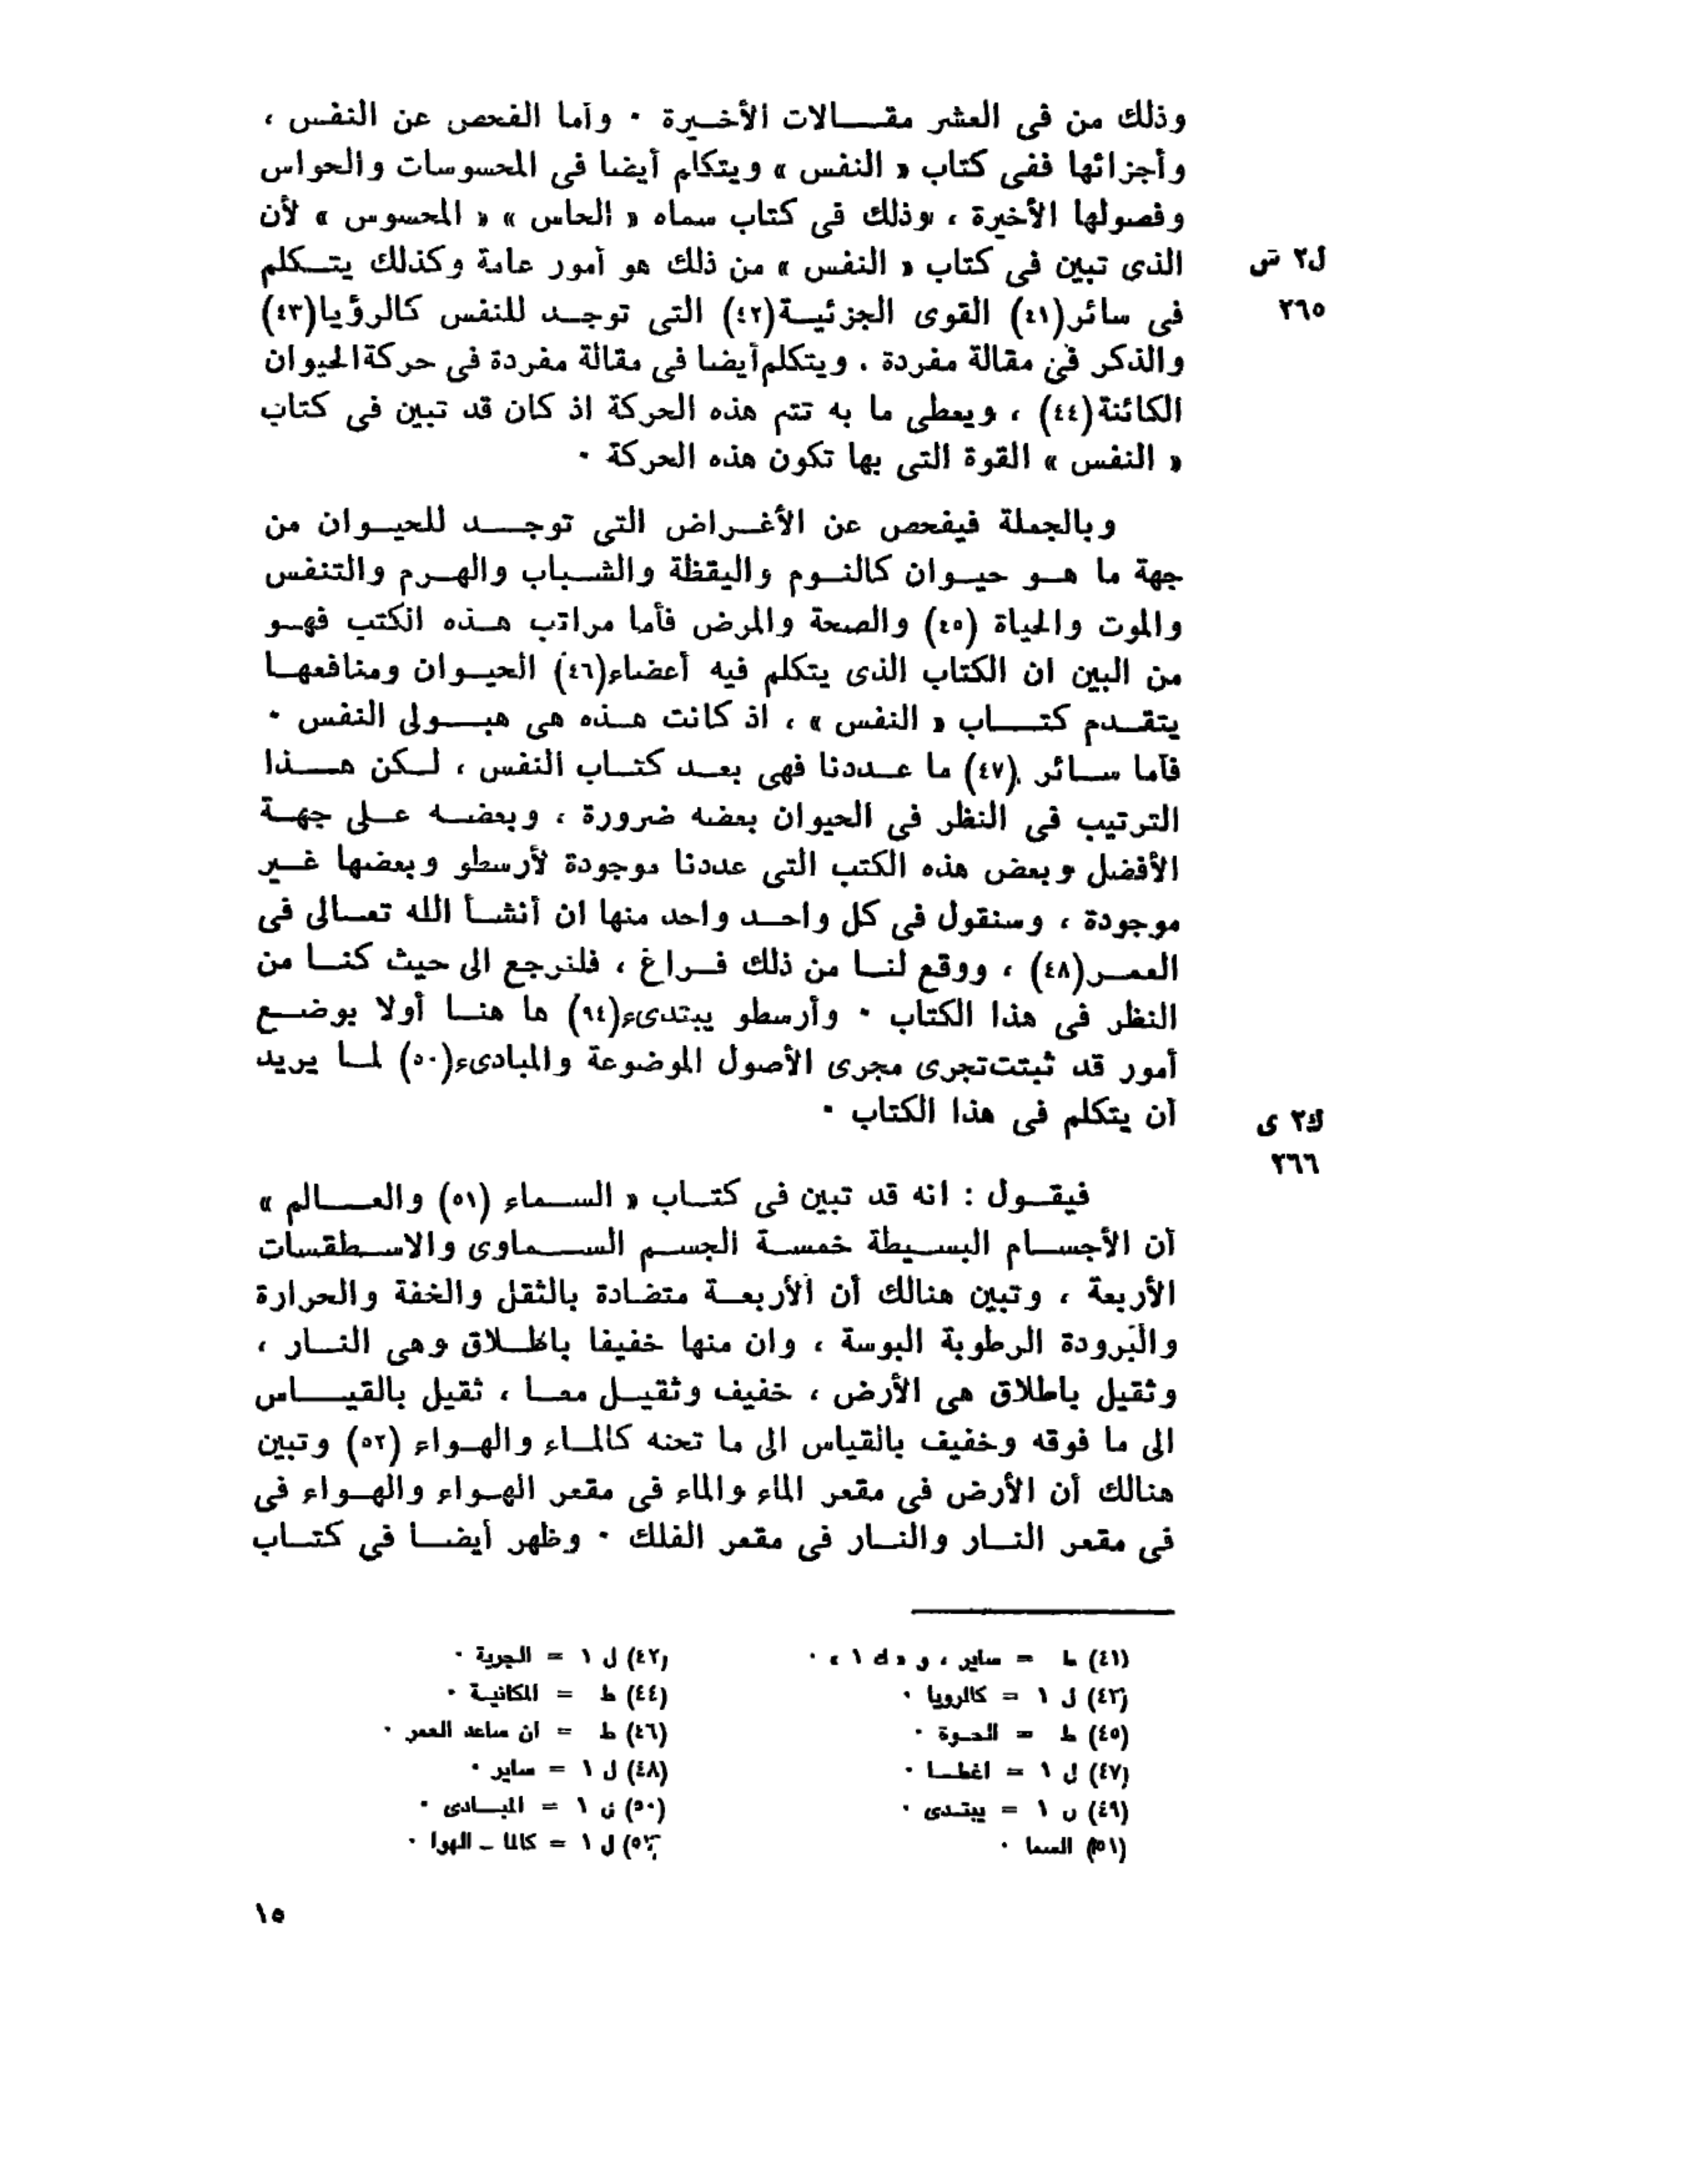 وذلك من فى العشر مقالات الأخيرة ٠ وأما الفحص عن النفس ،
وأجزائها ففى كتاب « النفس » ويتكلم أيضا فى المحسوسات والحواس
وفصولها الأخيرة ، وذلك فى كتاب سماه « الحاس » « المحسوس » لأن
الذى تبين فى كتاب « النفس » من ذلك هو أمور عامة وكذلك يتكلم
ل٢ ش
فى سائر(٤١) القوى الجزئية(٤٢) التى توجد للنفس كالرؤيا(٤٣)
٢٦٥
والذكر فى مقالة مفردة . ويتكلم أيضا فى مقالة مفردة فى حركة الحيوان
الكائنة(٤٤) ، ويعطى ما به تتم هذه الحركة اذ كان قد تبين فى كتاب
« النفس » القوة التى بها تكون هذه الحركة ٠
وبالجملة فيفحص عن الأغراض التى توجد للحيوان من
جهة ما هو حيوان كالنوم واليقظة والشباب والهرم والتنفس
والموت والحياة (٤٥) والصحة والمرض فأما مراتب هذه الكتب فهو
من البين ان الكتاب الذى يتكلم فيه أعضاء(٤٦) الحيوان ومنافعها
يتقدم كتاب « النفس » ، اذ كانت هذه هى هبولى النفس ٠
فأما سائر (٤٧) ما عددنا فهى بعد كتاب النفس ، لكن هذا
الترتيب فى النظر فى الحيوان بعضه ضرورة ، وبعضه على جهة
الأفضل وبعض هذه الكتب التى عددنا موجودة لأرسطو وبعضها غير
موجودة ، وسنقول فى كل واحد واحد منها ان أنشأ الله تعالى فى
العمر(٤٨) ، ووقع لنا من ذلك فراغ ، فلنرجع الى حيث كنا من
النظر فى هذا الكتاب ٠ وأرسطو يبتدىء(٩٤) ها هنا أولا بوضع
أمور قد ثبتت تجرى مجرى الأصول الموضوعة والمبادىء(٥٠) لما يريد
أن يتكلم فى هذا الكتاب ٠
ك٢ ى
٢٦٦
فيقول : انه قد تبين فى كتاب « السماء (٥١) والعالم »
أن الأجسام البسيطة خمسة الجسم السماوى والاسطقسات
الأربعة ، وتبين هنالك أن الأربعة متضادة بالثقل والخفة والحرارة
والبرودة الرطوبة البوسة ، وان منها خفيفا باطلاق وهى النار ،
وثقيل باطلاق هى الأرض ، خفيف وثقيل معا ، ثقيل بالقياس
الى ما فوقه وخفيف بالقياس الى ما تحته كالماء والهواء (٥٢) وتبين
هنالك أن الأرض فى مقعر الماء والماء فى مقعر الهواء والهواء فى
فى مقعر النار والنار فى مقعر الفلك ٠ وظهر أيضا فى كتاب
(٤١) ط = ساير ، و « ك ١ » ٠
(٤٢) ل ١ = الجرية ٠
(٤٣) ل ١ = كالرويا ٠
(٤٤) ط = المكانية ٠
(٤٥) ط = الحوة ٠
(٤٦) ط = ان ساعد العمر ٠
(٤٧) ل ١ = اغطا ٠
(٤٨) ل ١ = ساير ٠
(٤٩) ل ١ = يبتدى ٠
(٥٠) ل ١ = المبادى ٠
(٥١) السما ٠
(٥٢) ل ١ = كالما ـ الهوا ٠
١٥